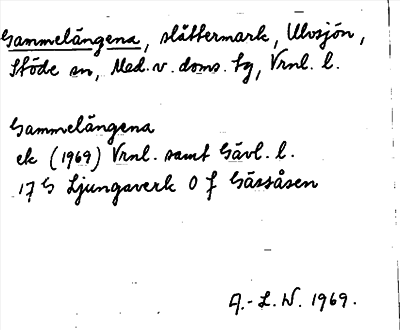 Gammelängena, slåttermark, Ulvsjön,
Stöde sn, Med. v. doms. tg, Vrnl. l.
Gammelängena
ek (1969) Vrnl. samt Gävl. l.
17 G Ljungaverk O f Gässåsen
A.-L. W. 1969.